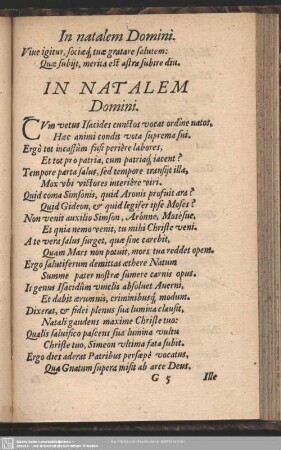 In natalem Domini.
Viue igitur, sociæq́; tuæ gratare salutem:
Quæ subijt, merita est astra subire diu.
IN NATALEM
Domini.
CVm vetus Isacides cunctos vocat ordine natos,
Hac animi condit vota suprema sui.
Ergò tot incassùm fusi perière labores,
Et tot pro patria, cum patriaq́; iacent?
Tempore parta salus, sed tempore transijt illa,
Mox vbi victores interière viri.
Quid coma Simsonis, quid Aronis profuit ara?
Quid Gideon, & quid legifer ipse Moses?
Non venit auxilio Simson, Arónne, Motésue.
Et quia nemo venit, tu mihi Christe veni.
A te vera salus surget, quæ sine carebit,
Quam Mars non potuit, mors tua reddet opem.
Ergo salutiferum demittas æthere Natum
Summe pater nostræ sumere carnis opus.
Is genus Isacidûm vinclis absoluet Auerni,
Et dabit ærumnis, criminibusq́; modum.
Dixerat, & fidei plenus sua lumina clausit,
Natali gaudens maxime Christe tuo:
Qualis saluifico pascens sua lumina vultu
Christe tuo, Simeon vltima fata subit.
Ergo dies aderat Patribus persæpè vocatus,
Qua Gnatum supera misit ab arce Deus.
G 5 Ille